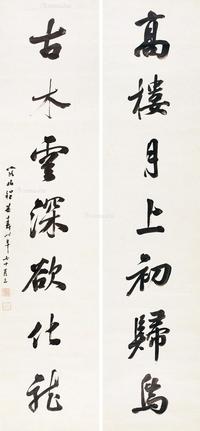 高樓月上初歸馬
古木雲深欲化龍